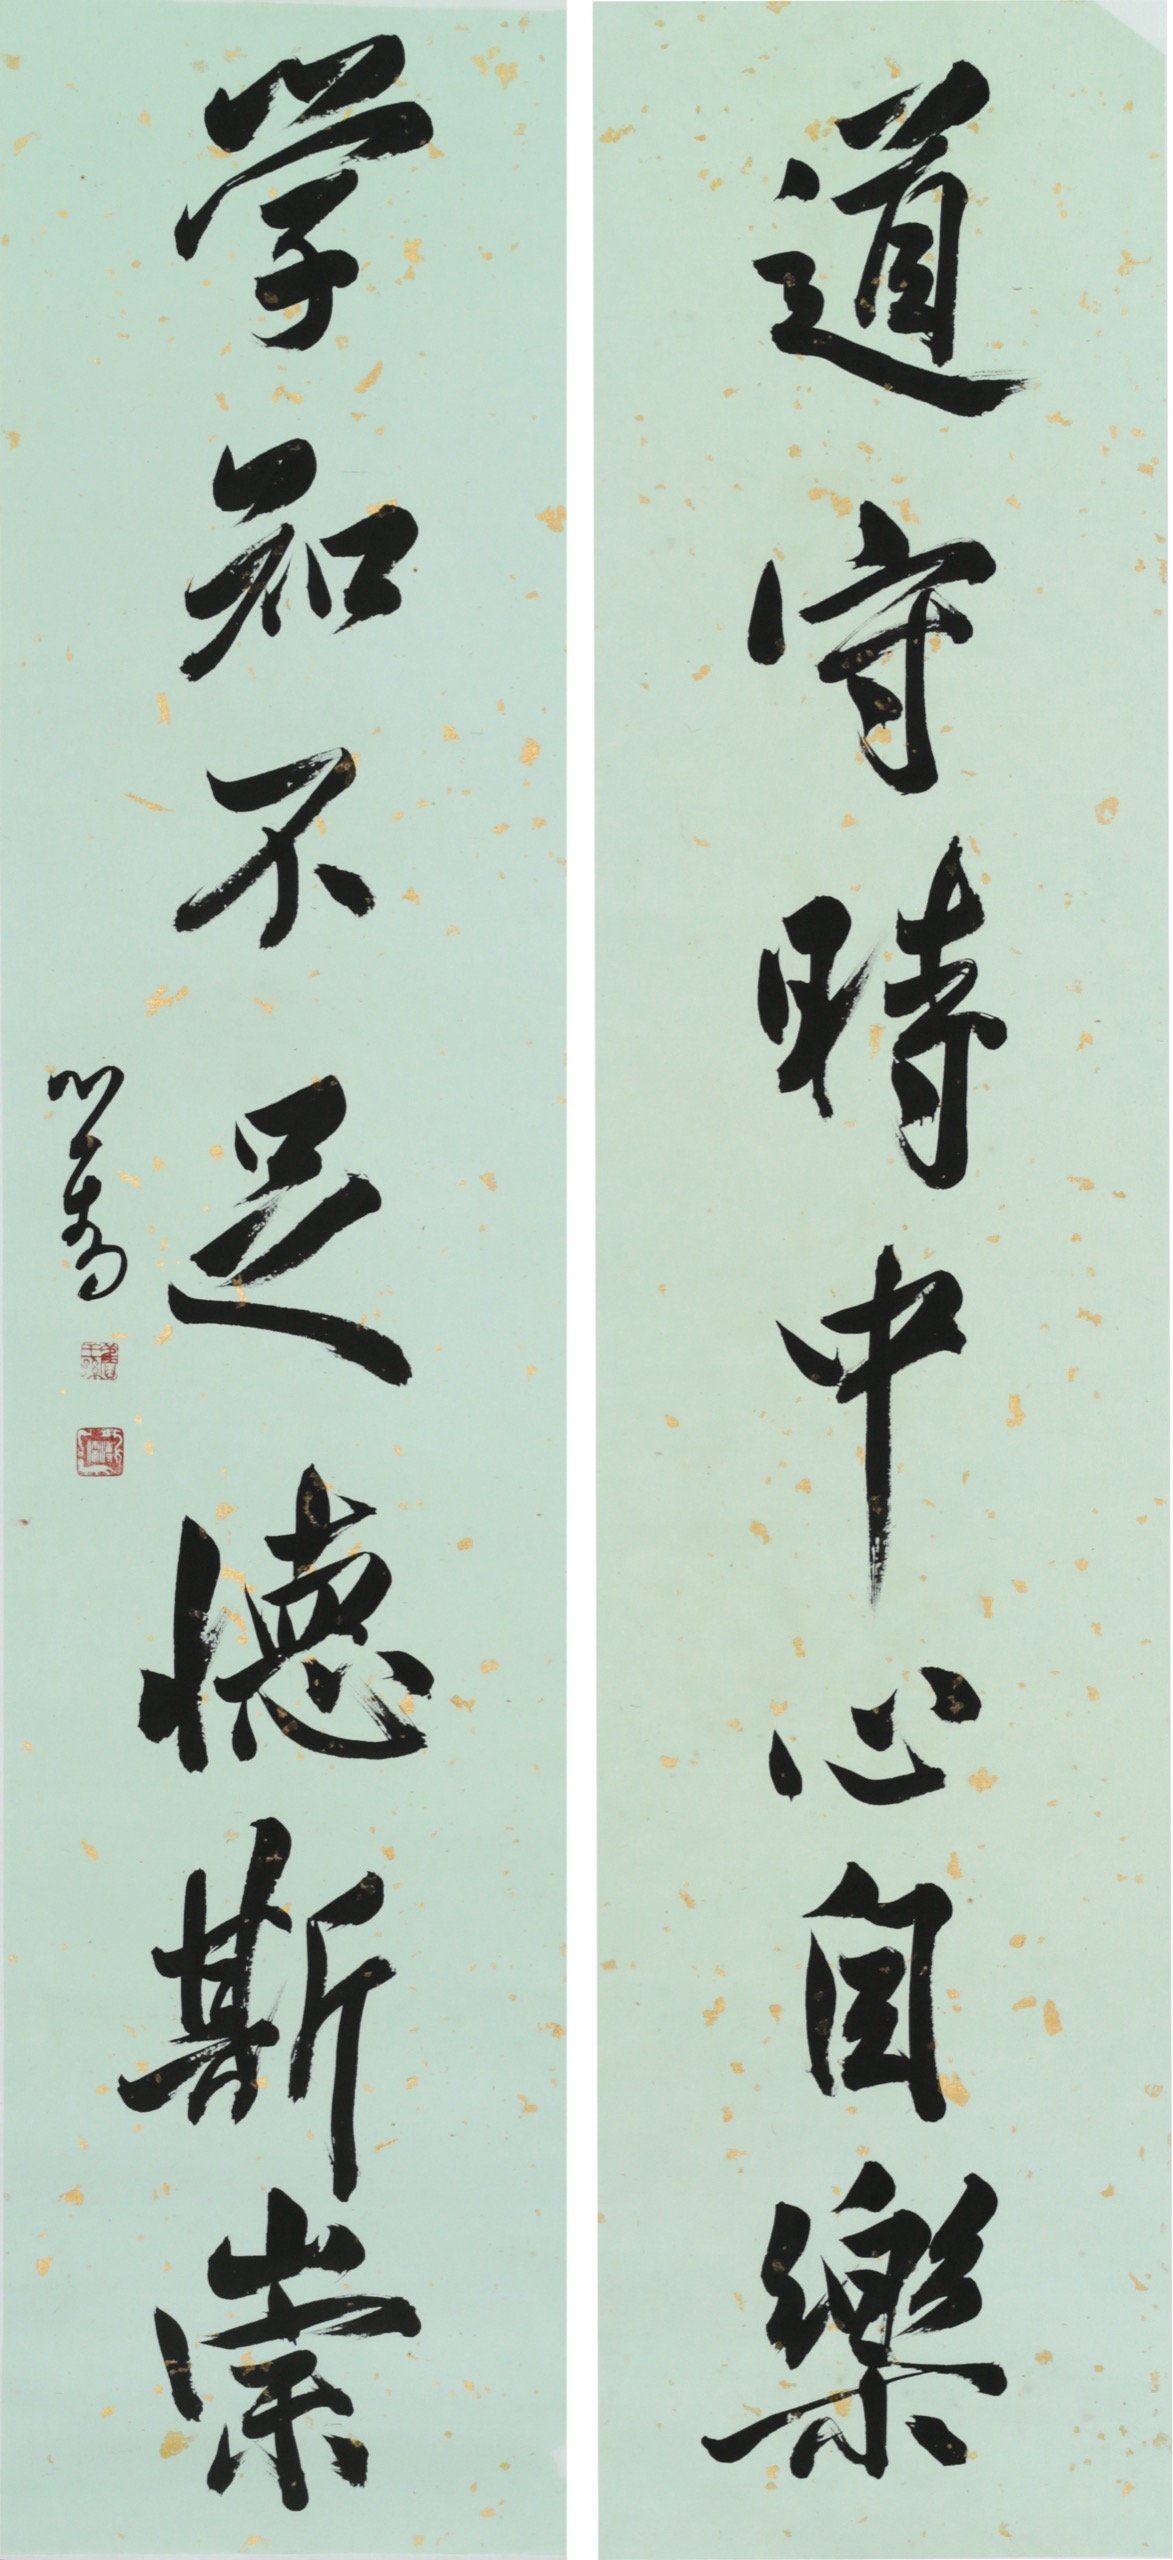 道守時中心自樂
学知不足德斯崇
心畬